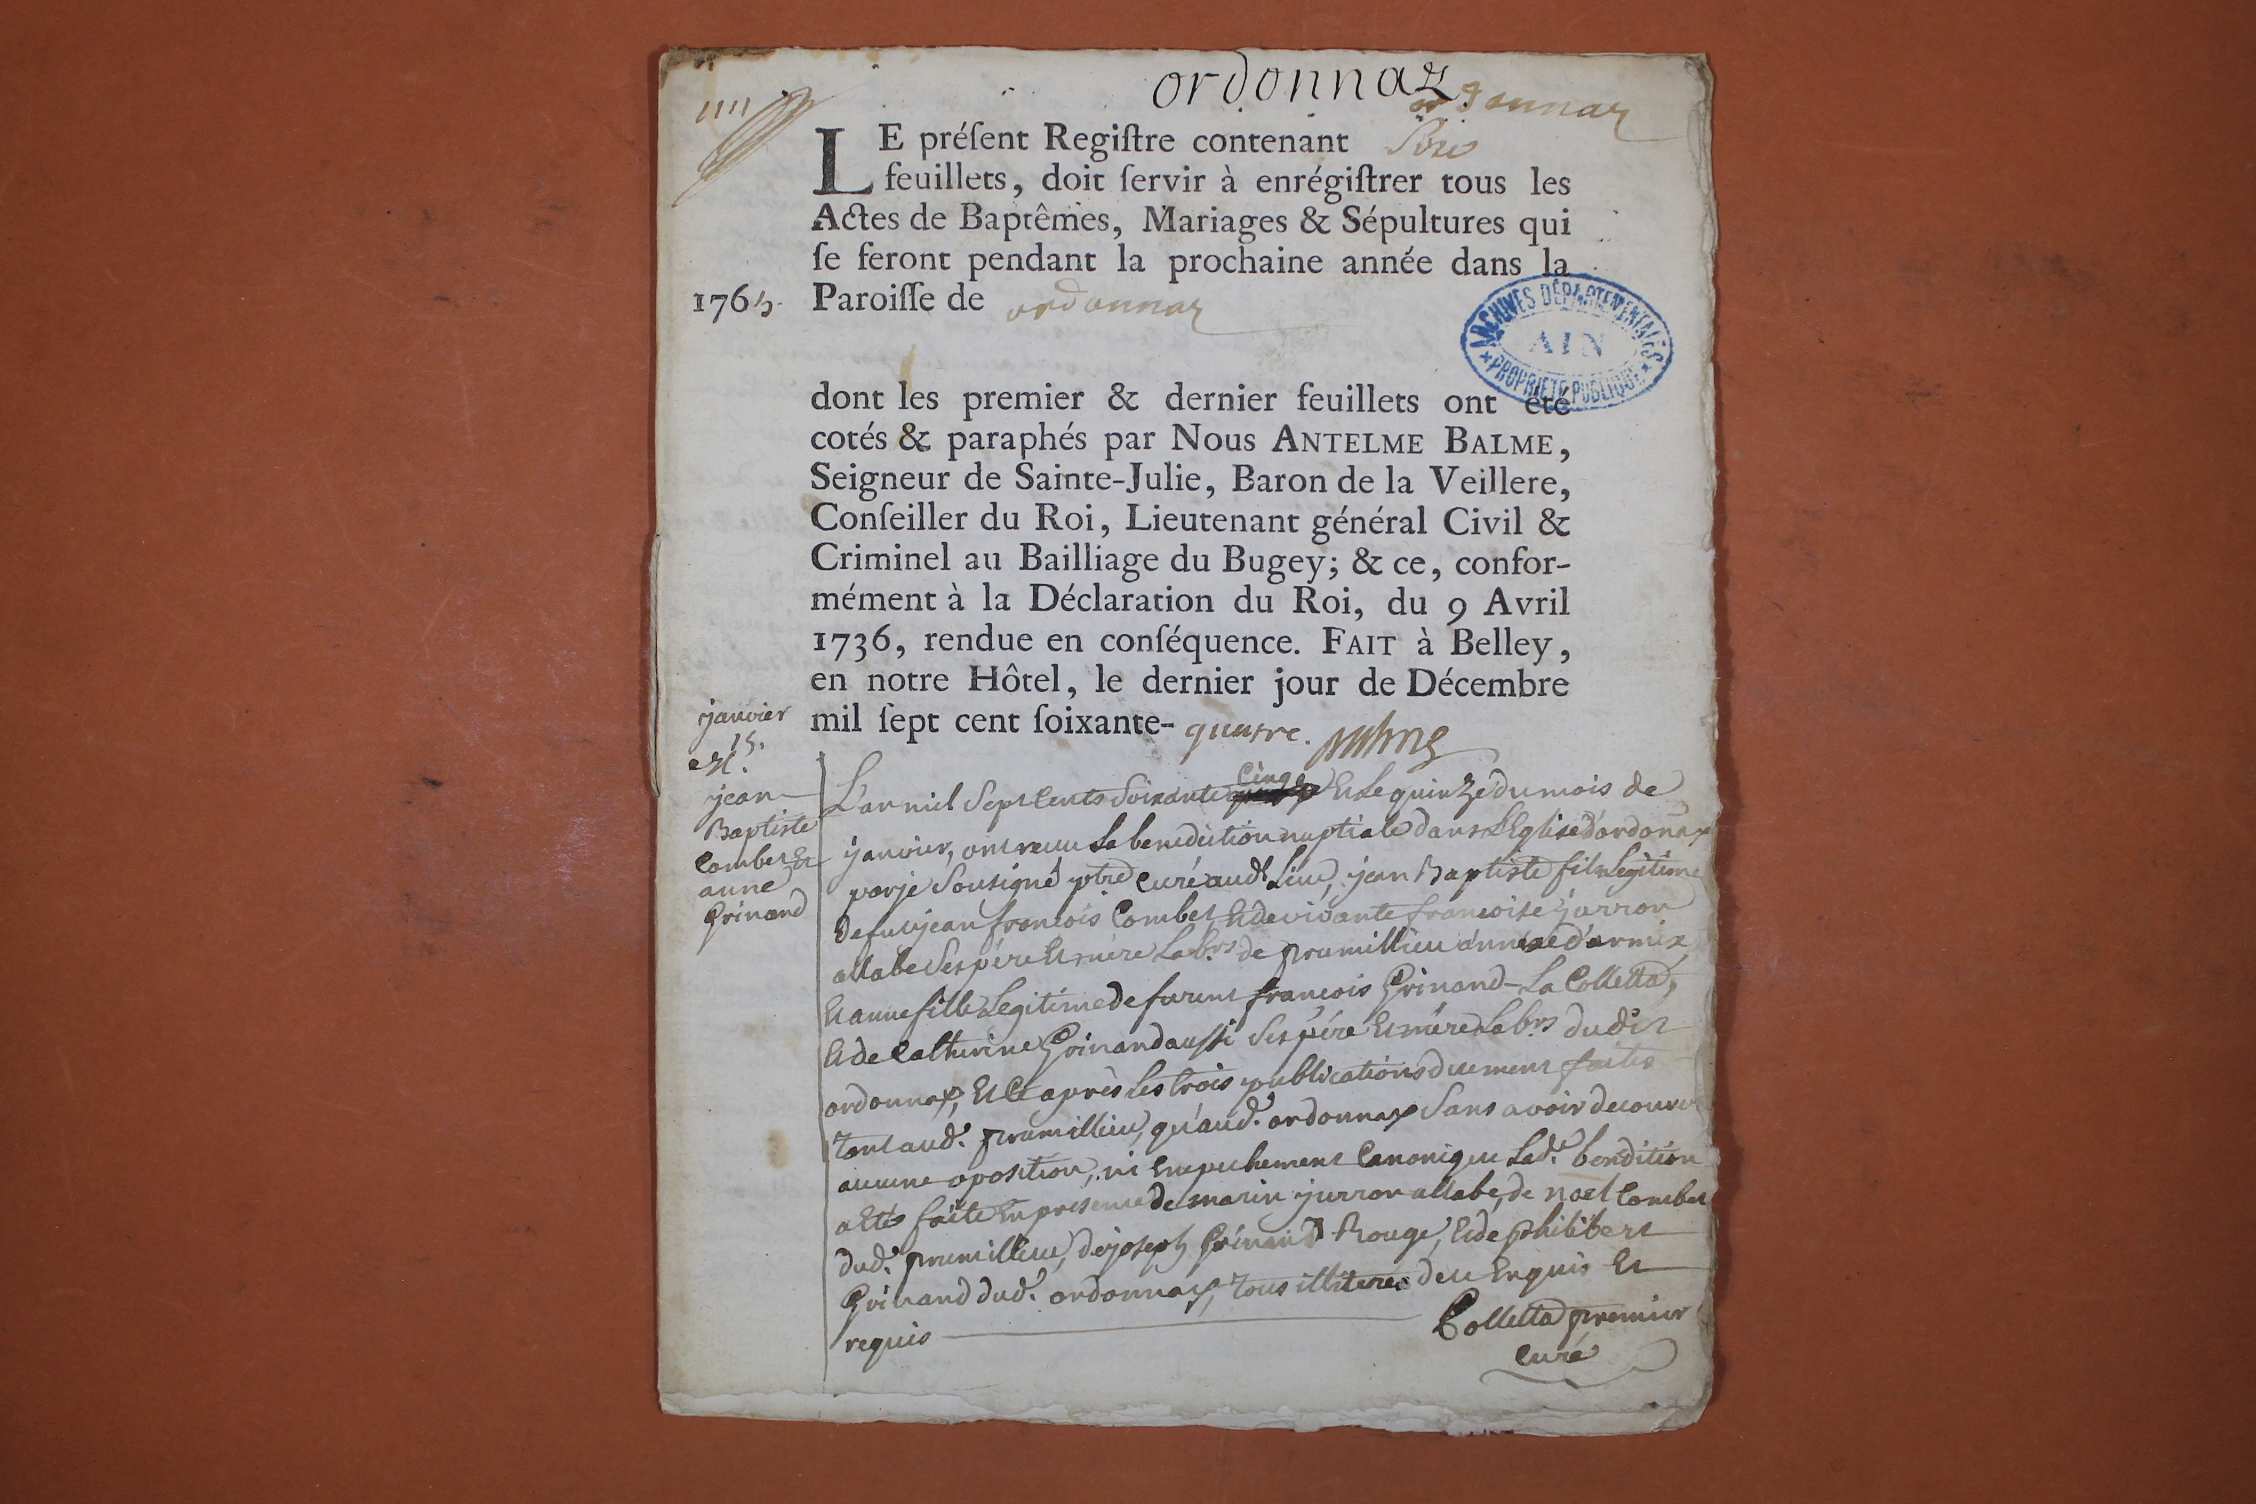 ordonnaz
ordonnaz
LE préſent Regiſtre contenant
feuillets, doit ſervir à enrégiſtrer tous les
Actes de Baptêmes, Mariages & Sépultures qui
ſe feront pendant la prochaine année dans la
1765. Paroiſſe de ordonnaz
ARCHIVES DÉPARTEMENTALES
AIN
PROPRIÉTÉ PUBLIQUE
dont les premier & dernier feuillets ont été
cotés & paraphés par Nous ANTELME BALME,
Seigneur de Sainte-Julie, Baron de la Veillere,
Conſeiller du Roi, Lieutenant général Civil &
Criminel au Bailliage du Bugey; & ce, confor-
mément à la Déclaration du Roi, du 9 Avril
1736, rendue en conſéquence. FAIT à Belley,
en notre Hôtel, le dernier jour de Décembre
mil ſept cent ſoixante- quatre.
janvier
15.
M.
jean
Baptiste
Combet Et
anne
Grinand
L'an mil Sept Cents Soixante Cinq Et Le quinze du mois de
janvier, ont recu La benediction nuptiale dans L'Eglise d'ordonnax
par je Sousigné ptre Curé aud.t Lieu, jean Baptiste fils Legitime
de fut jean francois Combet Et de vivante francoise jurron
allabe Ses pére Et mére Lab.rs de prumillieu annexe d'armix
Et anne fille Legitime de furent francois Grinand-La Colletta,
Et de Catherine Grinand aussi Ses pére Et mére Lab.rs dudit
ordonnax, Et Ce aprés Les trois publications duement faites
tant aud.t prumillieu, qu'aud.t ordonnax Sans avoir decouvert
aucune oposition, ni Empechement Canonique Lad.e bendition
a Eté faite En presence de marin jurron allabe, de noel Combet
dud.t prumillieu, de joseph Grinand Rouge, Et de philibert
Grinand dud.t ordonnax, tous illiterés de ce Enquis Et
requis
Colletta premier
Curé